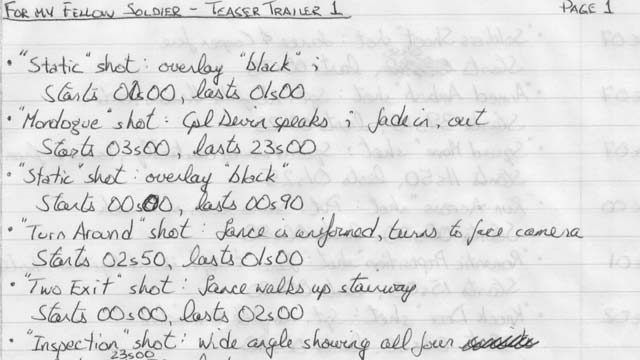 FOR MY FELLOW SOLDIER - TEASER TRAILER 1 PAGE 1
• "Static" shot: overlay "black";
Starts 00s00, lasts 01s00
• "Monologue" shot: Cpl Devin speaks; fade in, out
Starts 03s00, lasts 23s00
• "Static" shot: overlay "black"
Starts 00s00, lasts 00s90
• "Turn Around" shot: Lance is uniformed, turns to face camera
Starts 02s50, lasts 01s00
• "Two Exit" shot: Lance walks up stairway
Starts 00s00, lasts 02s00
• "Inspection" shot: wide angle showing all four
23s00